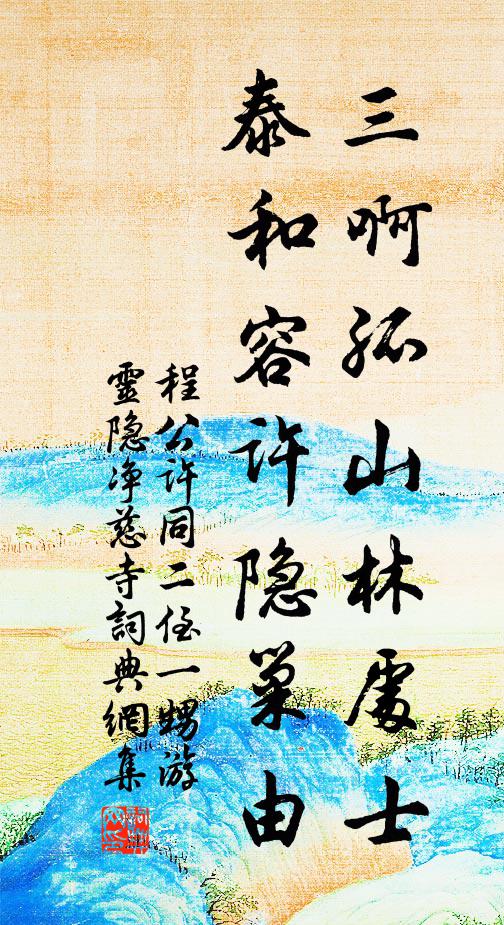 三啊孤山林處士
泰和容许隐巢由
程公许同二侄一甥游
靈隐净慈寺詞典網集